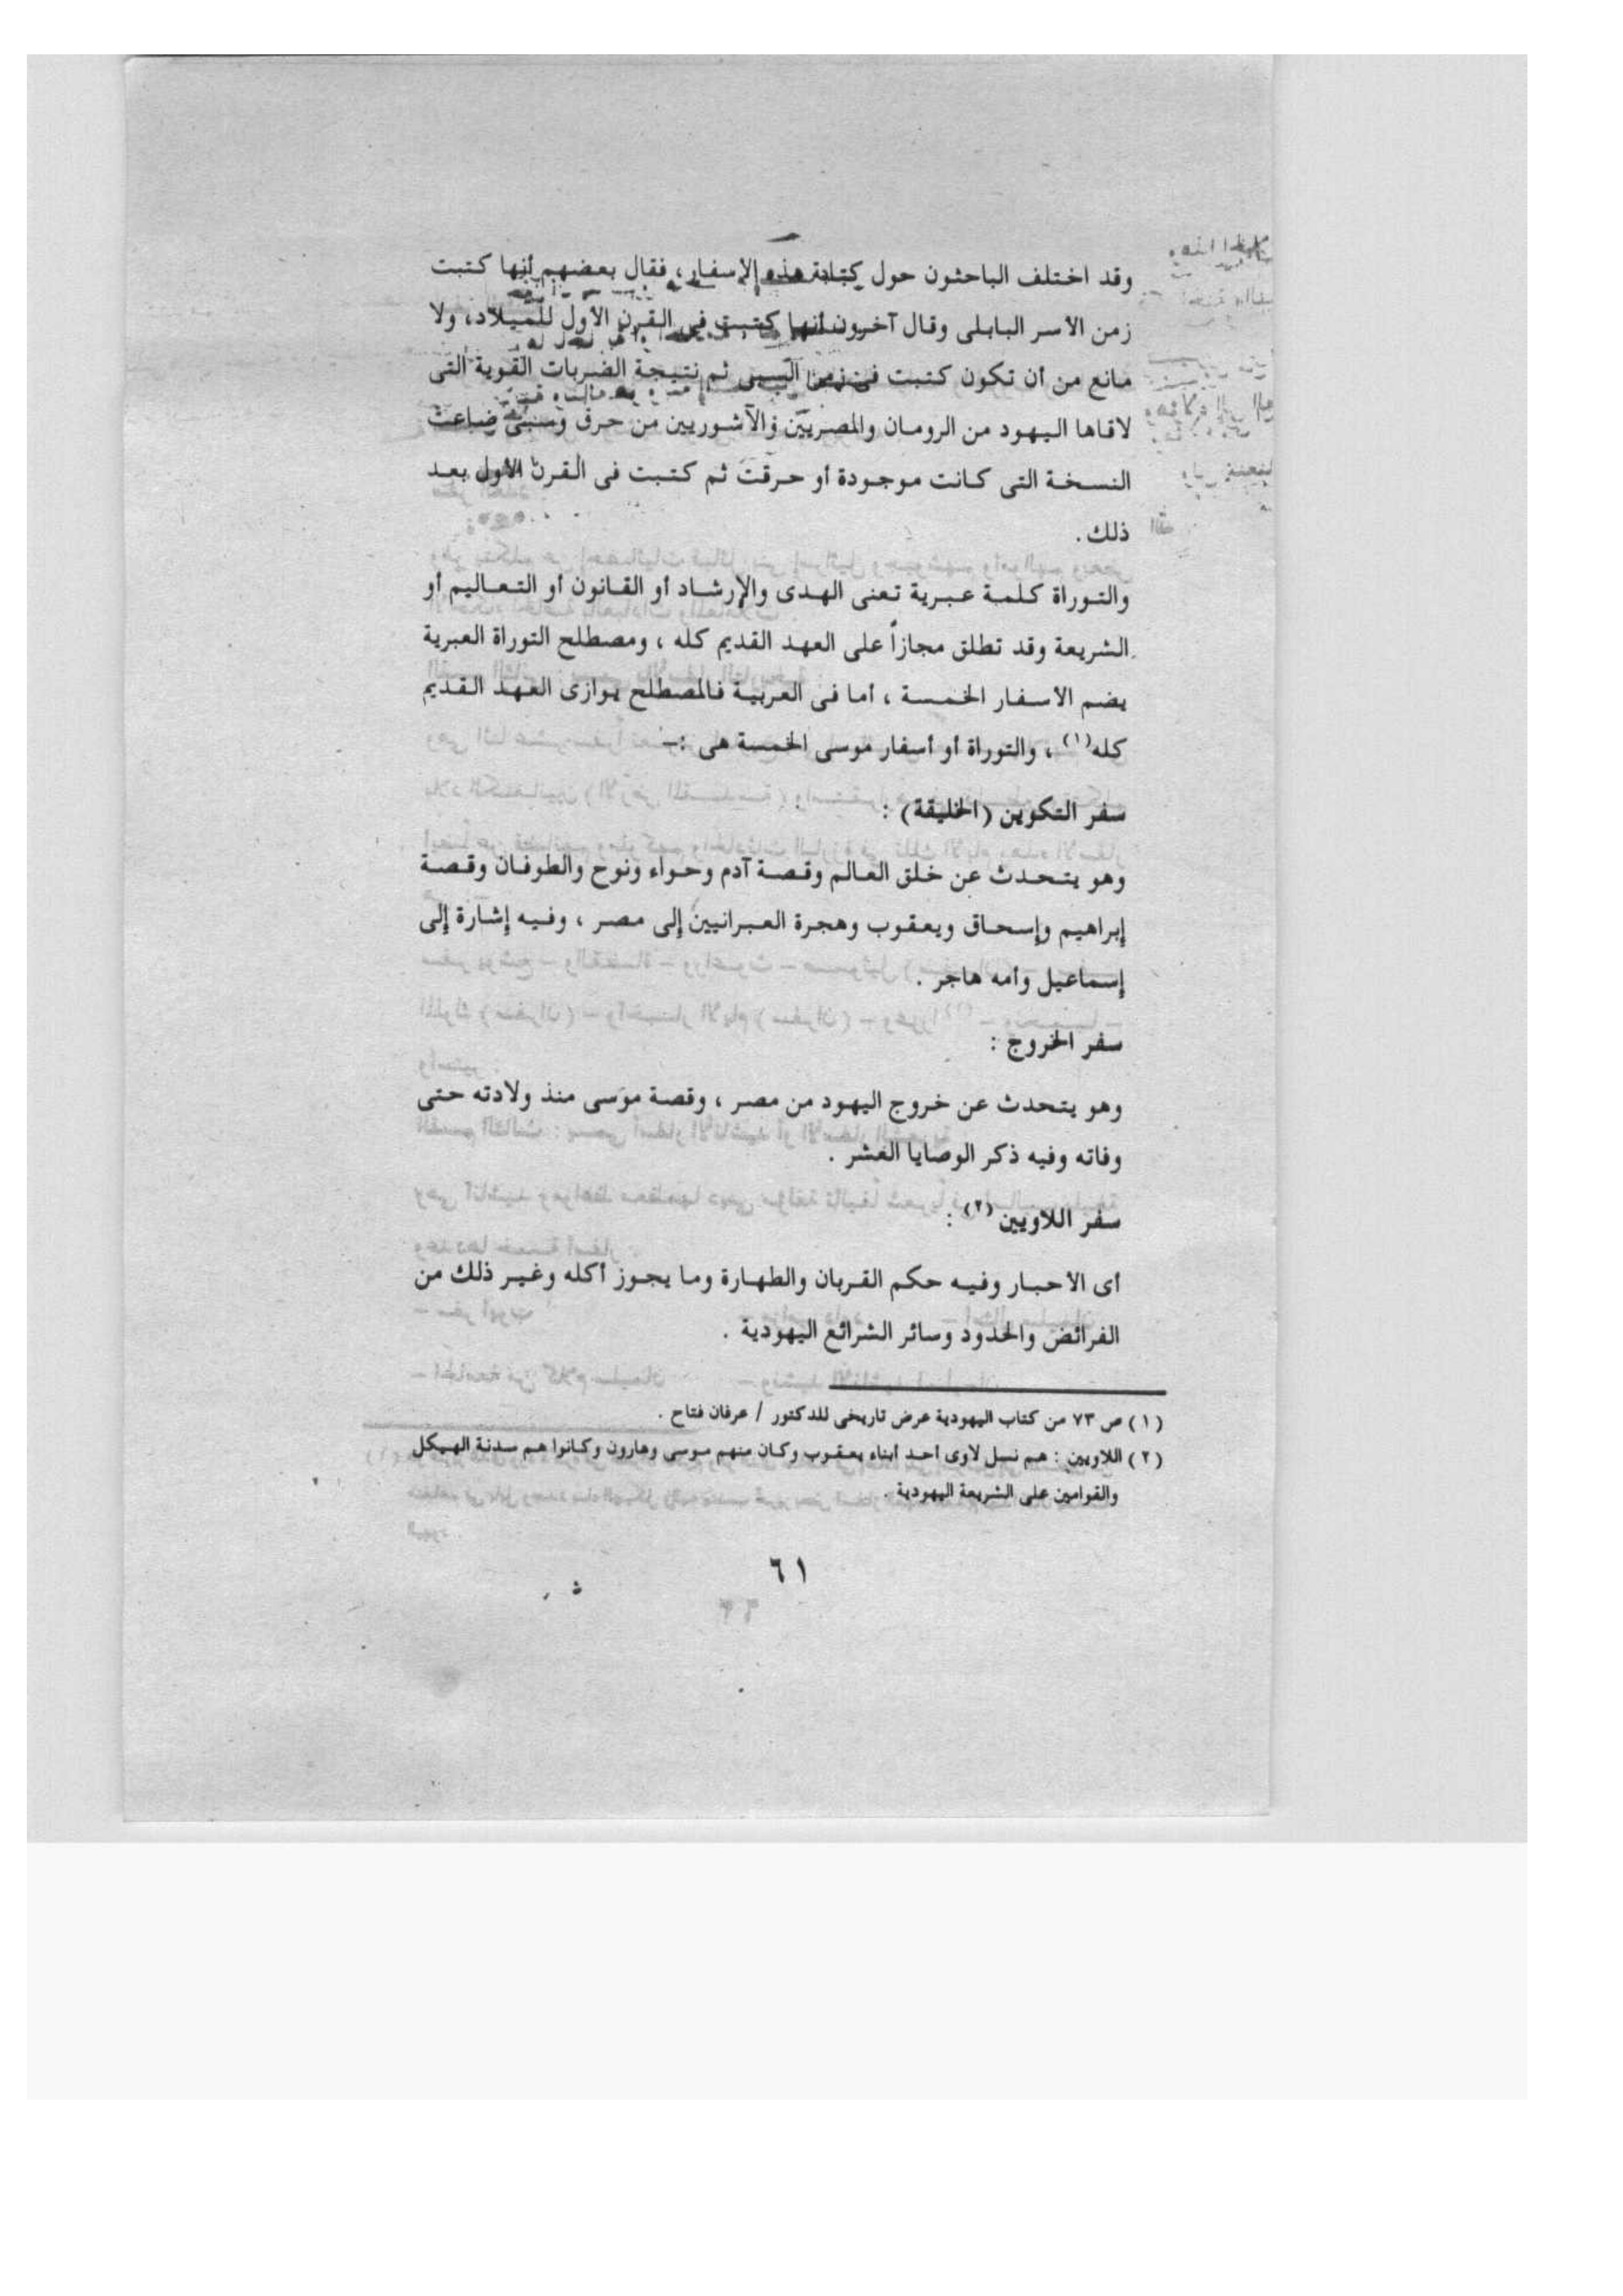 وقد اختلف الباحثون حول كتابة هذه الاسفار، فقال بعضهم أنها كتبت
زمن الاسر البابلى وقال آخرون أنها كتبت فى القرن الأول للميلاد، ولا
مانع من أن تكون كتبت فى زمن السبى ثم نتيجة الضربات القوية التى
لاقاها اليهود من الرومان والمصريين والآشوريين من حرق وسبى ضاعت
النسخة التى كانت موجودة أو حرقت ثم كتبت فى القرن الأول بعد
ذلك .
والتوراة كلمة عبرية تعنى الهدى والإرشاد أو القانون أو التعاليم أو
الشريعة وقد تطلق مجازاً على العهد القديم كله ، ومصطلح التوراة العبرية
يضم الاسفار الخمسة ، أما فى العربية فالمصطلح يوازى العهد القديم
كله(١) ، والتوراة أو أسفار موسى الخمسة هى :-
سفر التكوين (الخليقة) :
وهو يتحدث عن خلق العالم وقصة آدم وحواء ونوح والطوفان وقصة
إبراهيم وإسحاق ويعقوب وهجرة العبرانيين إلى مصر ، وفيه إشارة إلى
إسماعيل وأمه هاجر .
سفر الخروج :
وهو يتحدث عن خروج اليهود من مصر ، وقصة موسى منذ ولادته حتى
وفاته وفيه ذكر الوصايا العشر .
سفر اللاويين(٢) :
أى الاحبار وفيه حكم القربان والطهارة وما يجوز أكله وغير ذلك من
الفرائض والحدود وسائر الشرائع اليهودية .
(١) ص ٧٣ من كتاب اليهودية عرض تاريخى للدكتور / عرفان فتاح .
(٢) اللاويين : هم نسل لاوى أحد أبناء يعقوب وكان منهم موسى وهارون وكانوا هم سدنة الهيكل
والقوامين على الشريعة اليهودية .
٦١